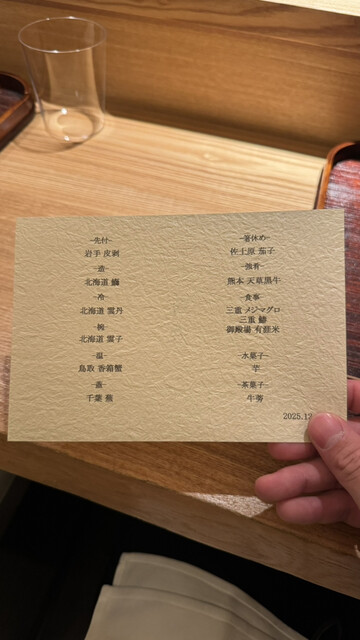 –先付–
岩手 皮剥
–造–
北海道
–冷–
北海道 雲丹
–椀–
北海道 雲子
–温–
鳥取 香箱蟹
–蓋–
千葉 蕪
–箸休め–
佐土原 茄子
–強肴–
熊本 天草黒牛
–食事–
三重 メジマグロ
三重
御殿場 有機米
–水菓子–
芋
–茶菓子–
牛蒡
2025.12